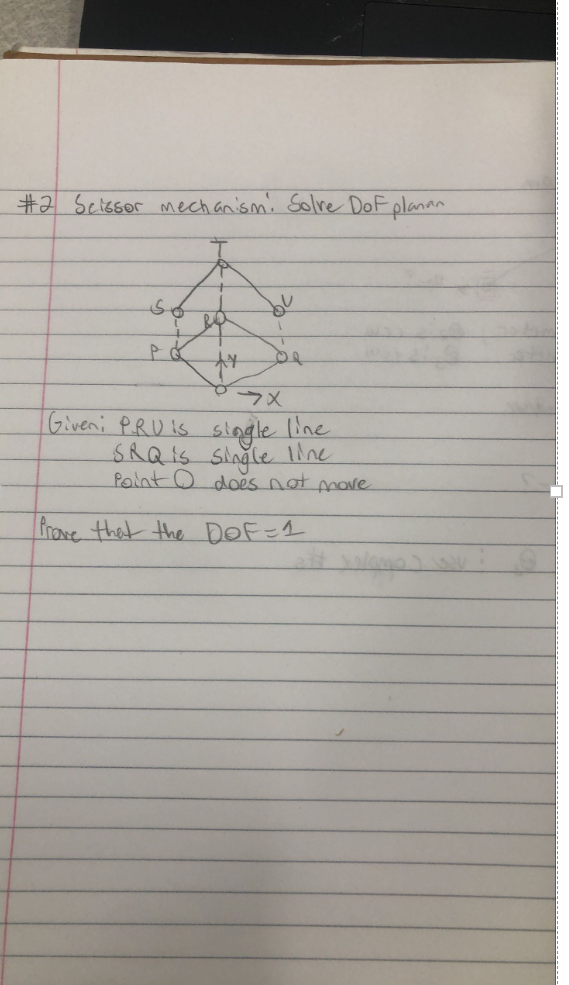 #2 Scissor mechanism: Solve DoF planar
T
S
U
R
P
Y
Q
X
Given: PRU is single line
SRQ is single line
Point O does not move
Prove that the DOF = 1